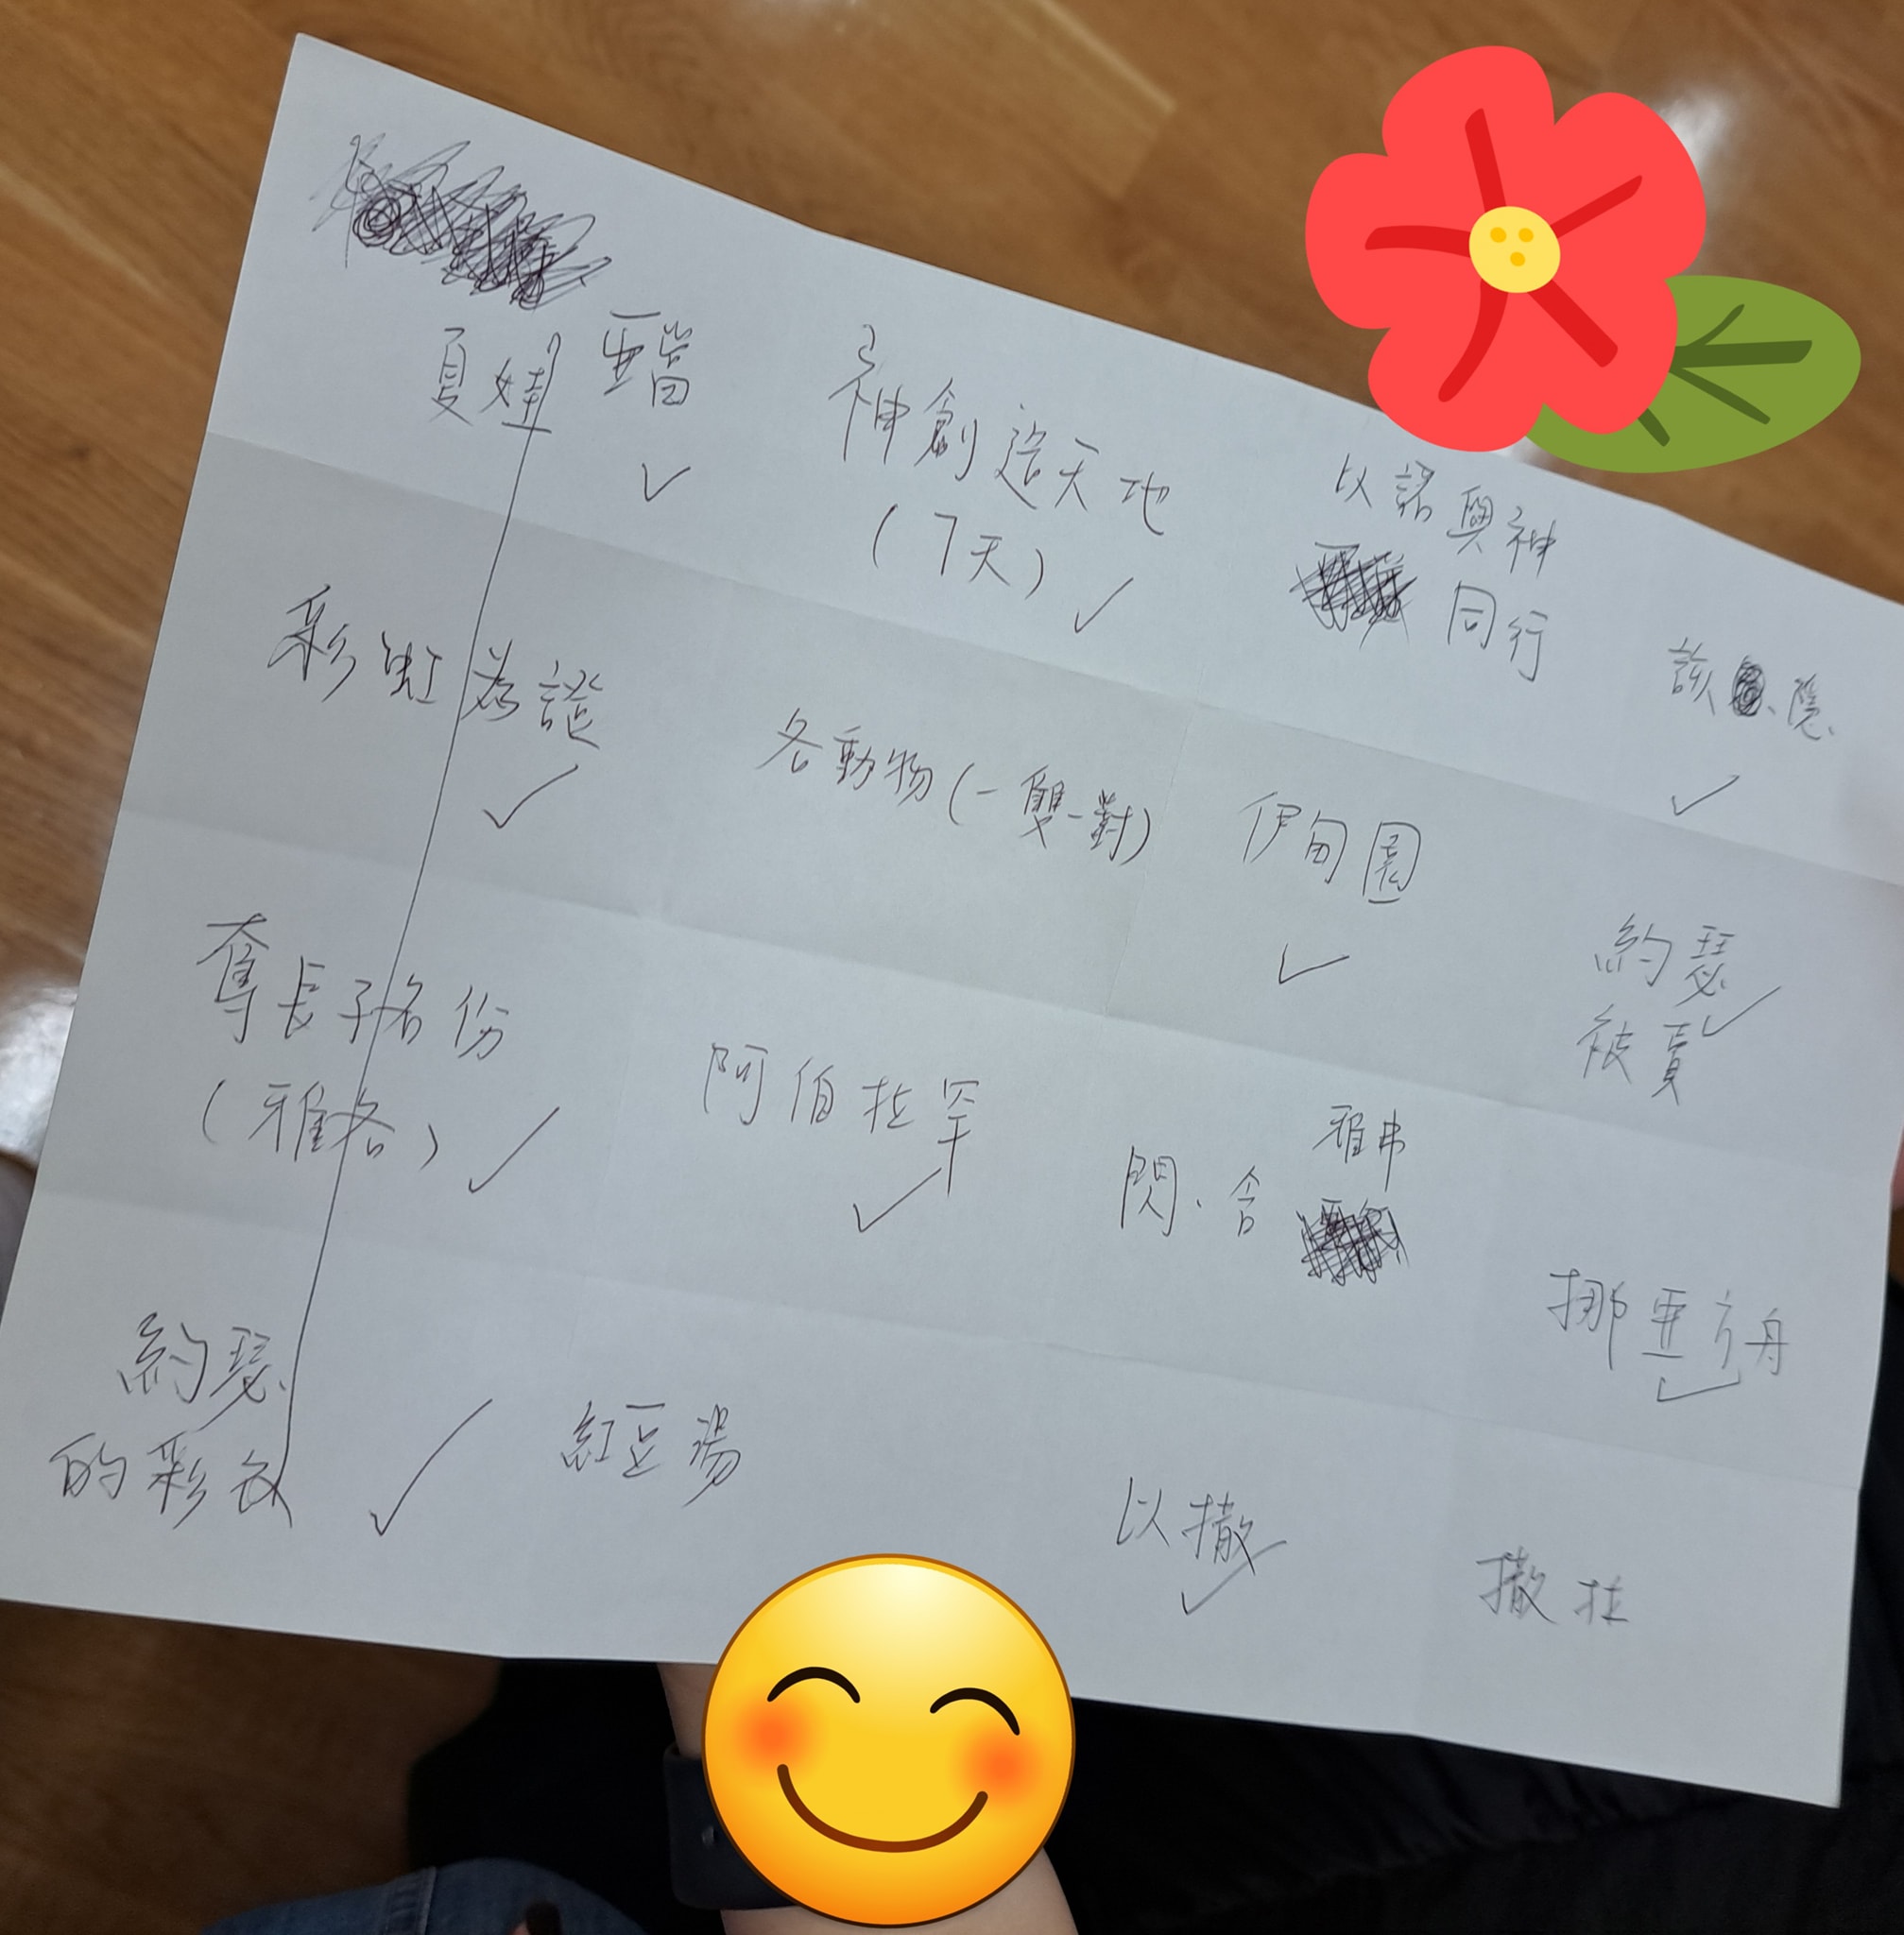 夏娃 亞當
神創造天地
(7天)
以諾與神
同行
該隱
彩虹為證
各動物(一雙一對)
伊甸園
約瑟
被賣
奪長子名份
(雅各)
阿伯拉罕
閃、含 雅弗
挪亞方舟
約瑟
的彩衣
紅豆湯
以撒
撒拉